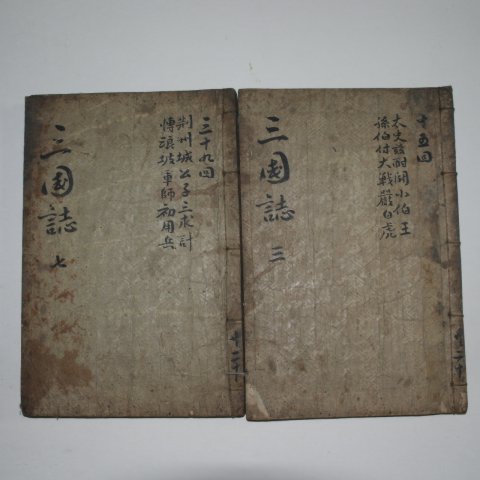 三國誌 三
十五回
太史慈酣鬪小伯王
孫伯付大戰嚴白虎
三國誌 七
三十九回
荆州城公子三求計
愽浪坡軍師初用兵